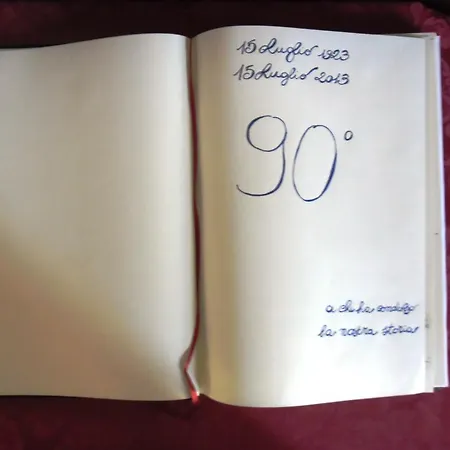 15 Luglio 1923
15 Luglio 2013
90°
a chi ha condiviso
la nostra storia